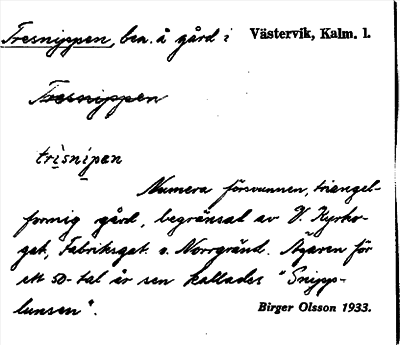 Tresnippen, ben. å gård i Västervik, Kalm. l.
Tresnippen
trisnipen
Numera försvunnen, triangel-
formig gård, begränsad av V. Kyrko-
gat., Fabriksgat. o. Norrgränd. Ägaren för
ett 50-tal år sen kallades "Snipp-
lunsen".
Birger Olsson 1933.